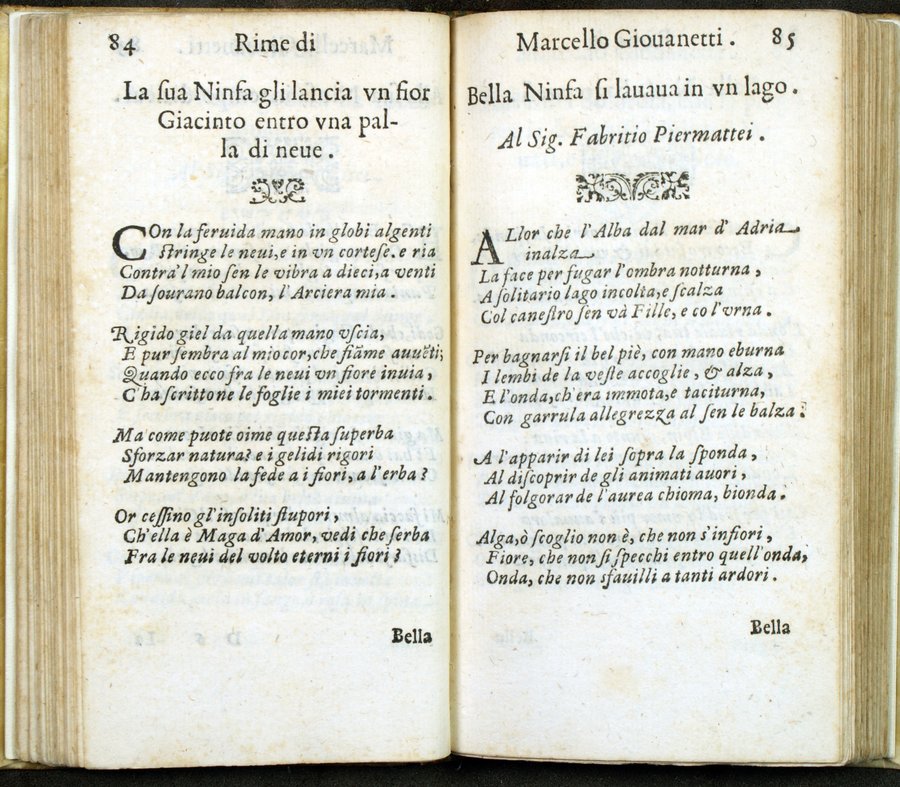 84 Rime di
La ſua Ninfa gli lancia vn fior
Giacinto entro vna pal-
la di neue.
COn la feruida mano in globi algenti
ſtringe le neui, e in vn corteſe. e ria
Contra'l mio ſen le vibra a dieci, a venti
Da ſourano balcon, l'Arciera mia.
Rigido giel da quella mano vſcia,
E pur ſembra al mio cor, che fiãme auuẽti;
Quando ecco fra le neui vn fiore inuia,
C'ha ſcritto ne le foglie i miei tormenti.
Ma come puote oime queſta ſuperba
Sforzar natura? e i gelidi rigori
Mantengono la fede a i fiori, a l'erba?
Or ceſſino gl'inſoliti ſtupori,
Ch'ella è Maga d'Amor, vedi che ſerba
Fra le neui del volto eterni i fiori?
Bella
Marcello Giouanetti. 85
Bella Ninfa ſi lauaua in vn lago.
Al Sig. Fabritio Piermattei.
ALlor che l'Alba dal mar d'Adria
inalza
La face per fugar l'ombra notturna,
A ſolitario lago incolta, e ſcalza
Col caneſtro ſen và Fille, e co l'vrna.
Per bagnarſi il bel piè, con mano eburna
I lembi de la veſte accoglie, & alza,
E l'onda, ch'era immota, e taciturna,
Con garrula allegrezza al ſen le balza:
A l'apparir di lei ſopra la ſponda,
Al diſcoprir de gli animati auori,
Al folgorar de l'aurea chioma, bionda.
Alga, ò ſcoglio non è, che non s'infiori,
Fiore, che non ſi ſpecchi entro quell'onda,
Onda, che non sfauilli a tanti ardori.
Bella